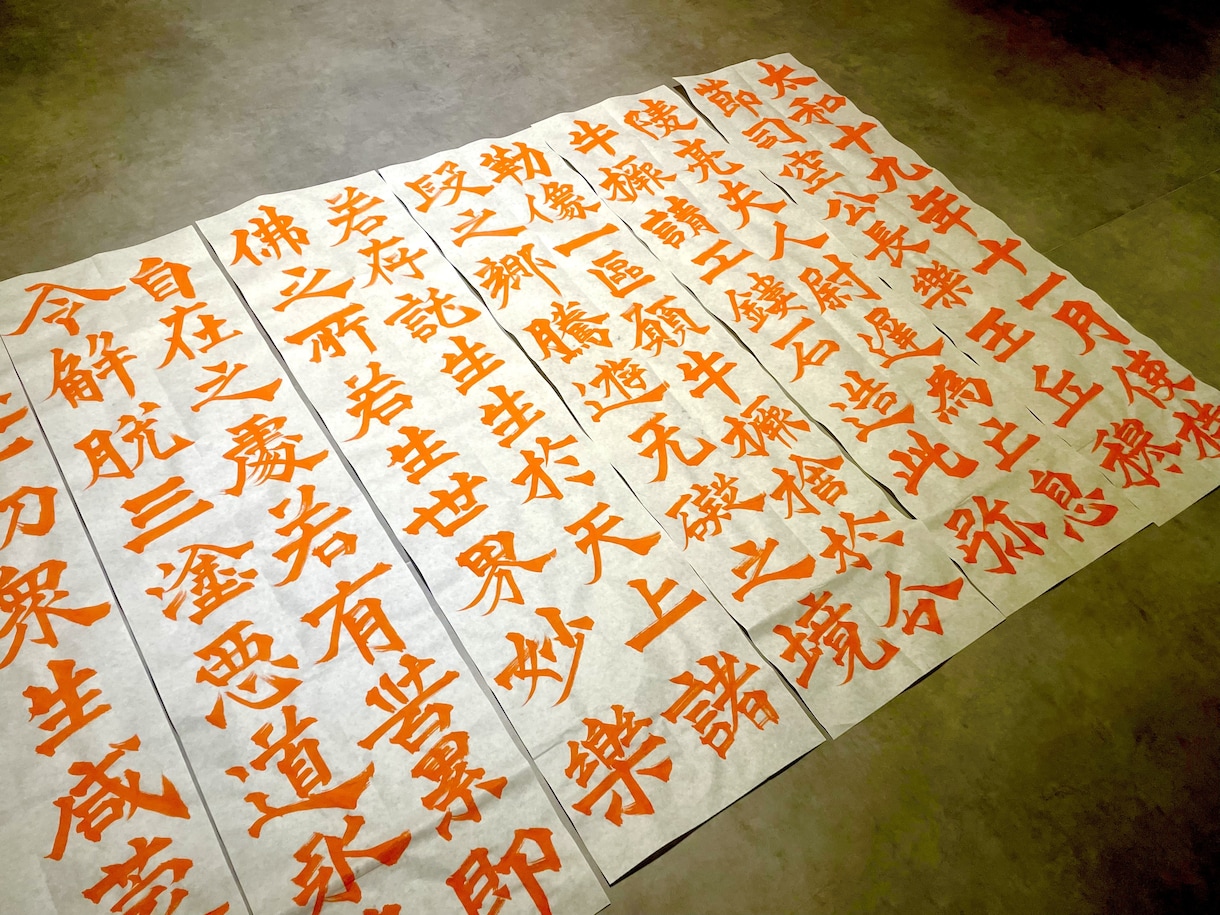 太和十九年十一月使持
節司空公長樂王丘穆
陵亮夫人尉遲為亡息
牛橛請工鏤石造此弥
勒像一區願牛橛捨扵分
段之鄉騰遊无礙之境
若存託生生扵天上諸
佛之所若生世界妙樂
自在之處若有苦累即
令解脫三塗悪道永
切眾生咸蒙